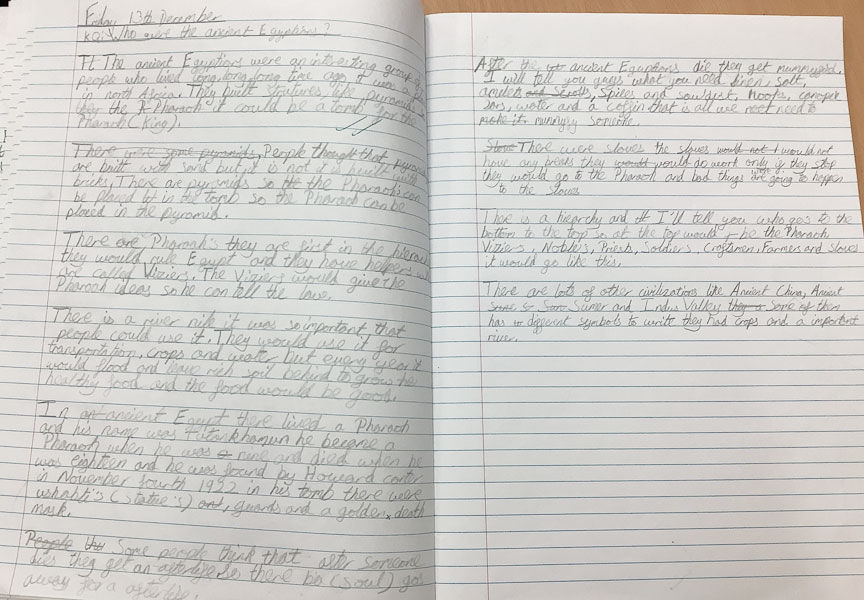 Friday 13th December
KQ: Who were the ancient Egyptians?
The ancient Egyptians were an interesting group of
people who lived long, long, long time ago it was a
in north Africa. They built strutures like pyramids,
the Pharaoh it could be a tomb for the
Pharaoh (King).
There were some pyramids, People thought that pyramids
are built with sand but it is not it is built with
bricks, There are pyramids so the Pharaoh's can
be placed in the tomb so the Pharaoh can be
placed in the pyramid.
There are Pharaoh's they are first in the hierachy
they would rule Egypt and they have helpers
are called Viziers. The Viziers would give the
Pharaoh ideas so he can tell the
There is a river nile it was so important that
people could use it. They would use it for
transportation, crops and water but every year it
would flood and leave rich soil behind to grow
healthy food and the food would be good.
In ancient Egypt there lived a Pharaoh
and his name was Tutankhamun he became a
Pharaoh when he was nine and died when he
was eighteen and he was found by Howard carter
in November fourth 1922 in his tomb there were
ushabti's (statue's) and, guards and a golden death
mask.
People Some people think that after someone
dies they get an afterlife, so there ba (soul) goes
away for a afterlife.
After the ancient Egyptians die they get mummyfied,
I will tell you guys what you need linen, salt,
amulet and Scrolls, Spices and sawdust, Hooks, canopic
Jars, water and a coffin that is all we need to
make it mummyfy someone.
There were slaves the slaves would not I would not
have any breaks they would would do work only if they stop
they would go to the Pharaoh and bad things were going to happen
to the slaves
There is a hierachy and I'll tell you who goes to the
bottom to the top so at the top would be the Pharaoh,
Viziers, Noble's, Priests, Soldiers, Craftsmen, Farmers and Slaves
it would go like this.
There are lots of other civilizations like Ancient China, Ancient
Sumer and Indus Valley they a some of them
has different symbols to write they had crops and a important
river.